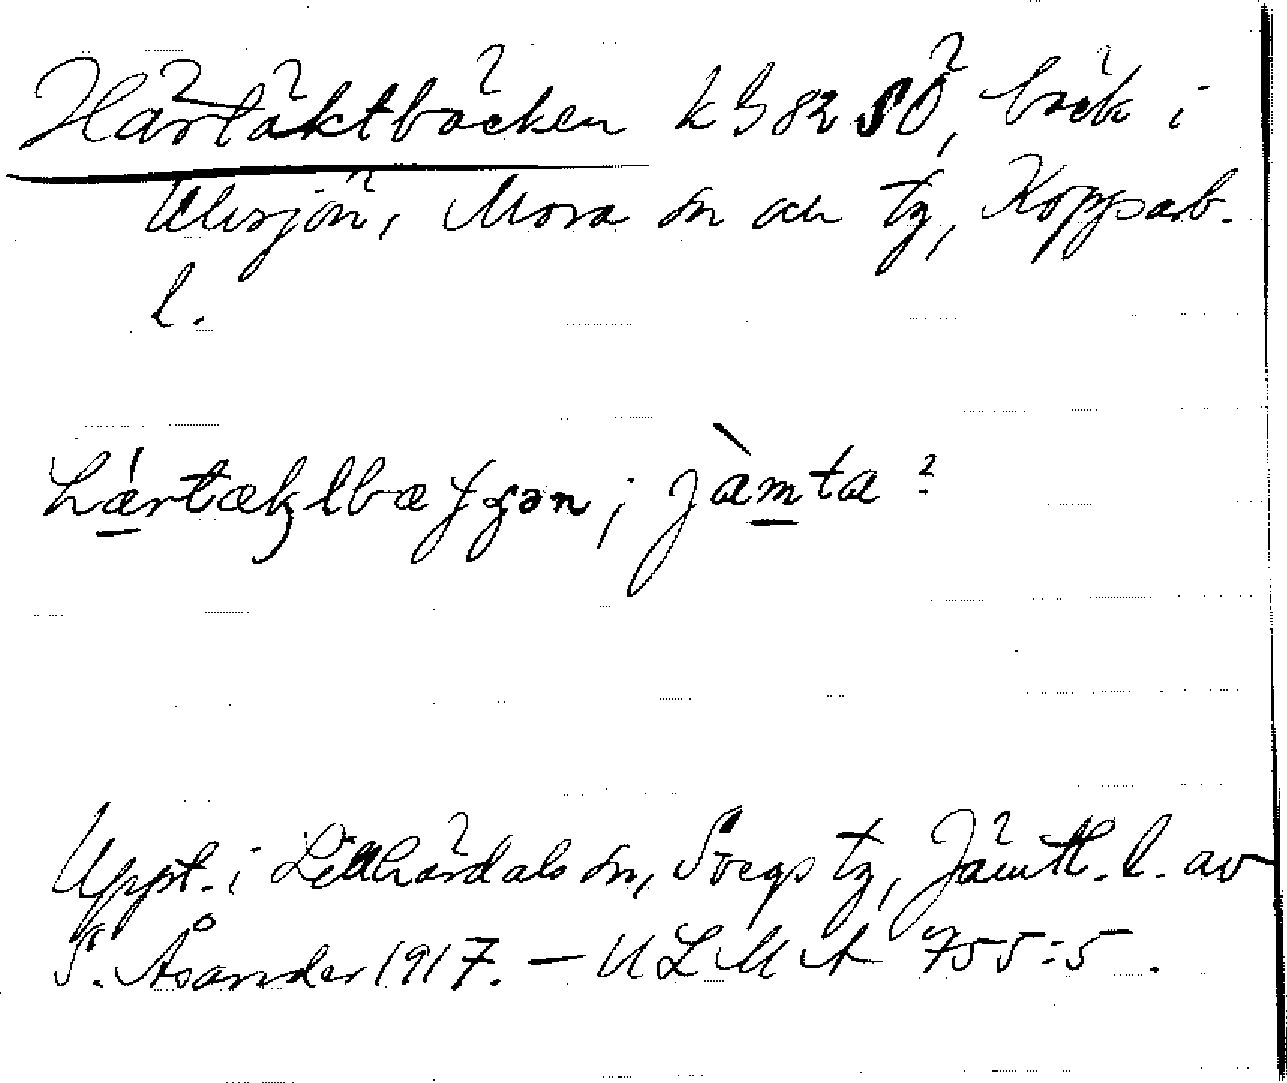 Härtäktbäcken kB 82 SÖ, bäck i
Ulvsjön, Mora sn och tg, Kopparb.
l.
hærtæktbæʃʃən; jàmta?
Uppt. i Lillhärdals sn, Svegs tg, Jämtl. l. av
S. Åsander 1917. — ULMA 755:5.